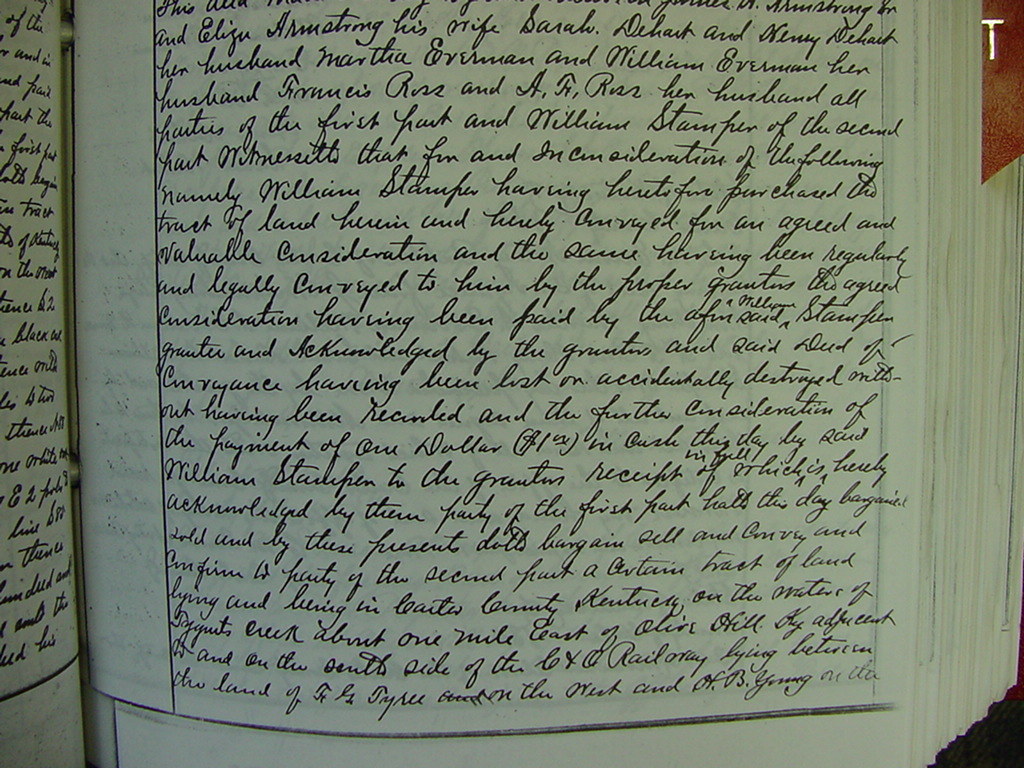 of the
and in
and paid
part the
first part
in tract
on the west
thence S 2
black oak
thence
one white
E 2 poles
line S 80
thence
and
the
his
T
This deed James H. Armstrong
and Eliza Armstrong his wife Sarah. Dehart and Henry Dehart
her husband Martha Everman and William Everman her
husband Francis Ross and A. F. Ross her husband all
parties of the first part and William Stamper of the second
part Witnesseth that for and Inconsideration of the following
namely William Stamper having heretofore purchased the
tract of land herein and hereby Conveyed for an agreed and
Valuable Consideration and the same having been regularly
and legally Conveyed to him by the proper grantors the agreed
Consideration having been paid by the afore said William Stamper
grantee and Acknowledged by the grantors and said Deed of
Conveyance having been lost or accidentally destroyed with-
out having been recorded and the further Consideration of
the payment of One Dollar ($1.00) in Cash this day by said
William Stamper to the grantors receipt in full of which is hereby
acknowledged by them party of the first part hath this day bargained
sold and by these presents doth bargain sell and Convey and
Confirm to party of the second part a Certain tract of land
lying and being in Carter County, Kentucky, on the waters of
Tygarts Creek about one mile East of Olive Hill Ky adjacent
to and on the south side of the C & O Railway lying between
the land of F G Tyree on the West and H. B. Young on the